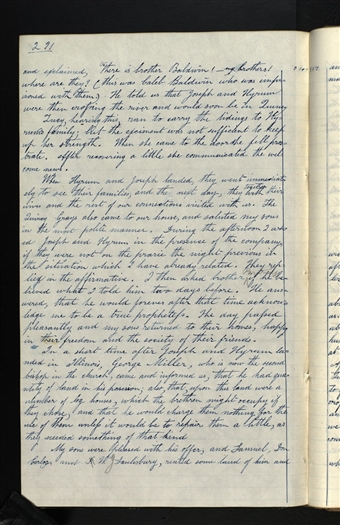 291
and exclaimed, There is brother Baldwin! my brothers!
where are they! (this was Caleb Baldwin who was impri-
soned with them.) He told us that Joseph and Hyrum
were then crossing the river and would soon be in Quincy
Lucy, hearing this, ran to carry the tidings to Hy-
rum's family; but the excitement was not sufficient to keep
up her strength. When she came to the door she fell pros-
trate. After recovering a little she communicated the wel-
come news.
When Hyrum and Joseph landed, they went immediate-
ly to see their families, and the next day, they together with their
wives and the rest of our connexions visited with us. The
Quincy Grays also came to our house, and saluted my sons
in the most polite manner. During the afternoon I ask-
ed Joseph and Hyrum in the presence of the company,
if they were not on the prairie the night previous in
the situation which I have already related. They rep-
lied in the affirmative. I then asked brother Partridge if he
believed what I told him two days before. He ans-
wered, that he would forever after that time acknow-
ledge me to be a true prophetess. The day passed
pleasantly and my sons returned to their homes, happy
in their freedom and the society of their friends.
In a short time after Joseph and Hyrum lan-
ded in Illinois, George Miller, who is now the second
bishop in the church, came and informed us, that he had quan-
tity of land in his possession; also, that upon this land were a
number of log houses, which the brethren might occupy if
they chose, and that he would charge them nothing for the
use of them unless it would be to repair them a little, as
they needed something of that kind
My sons were pleased with his offer, and Samuel, Don
Carlos and W. J. Salisbury, rented some land of him and